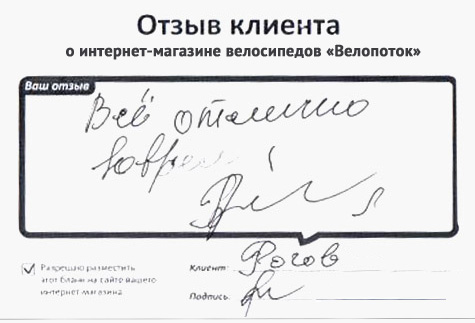 Отзыв клиента
о интернет-магазине велосипедов «Велопоток»
Ваш отзыв
Всё отлично
Разрешаю разместить
этот бланк на сайте вашего
интернет магазина
Клиент: Рогов
Подпись: